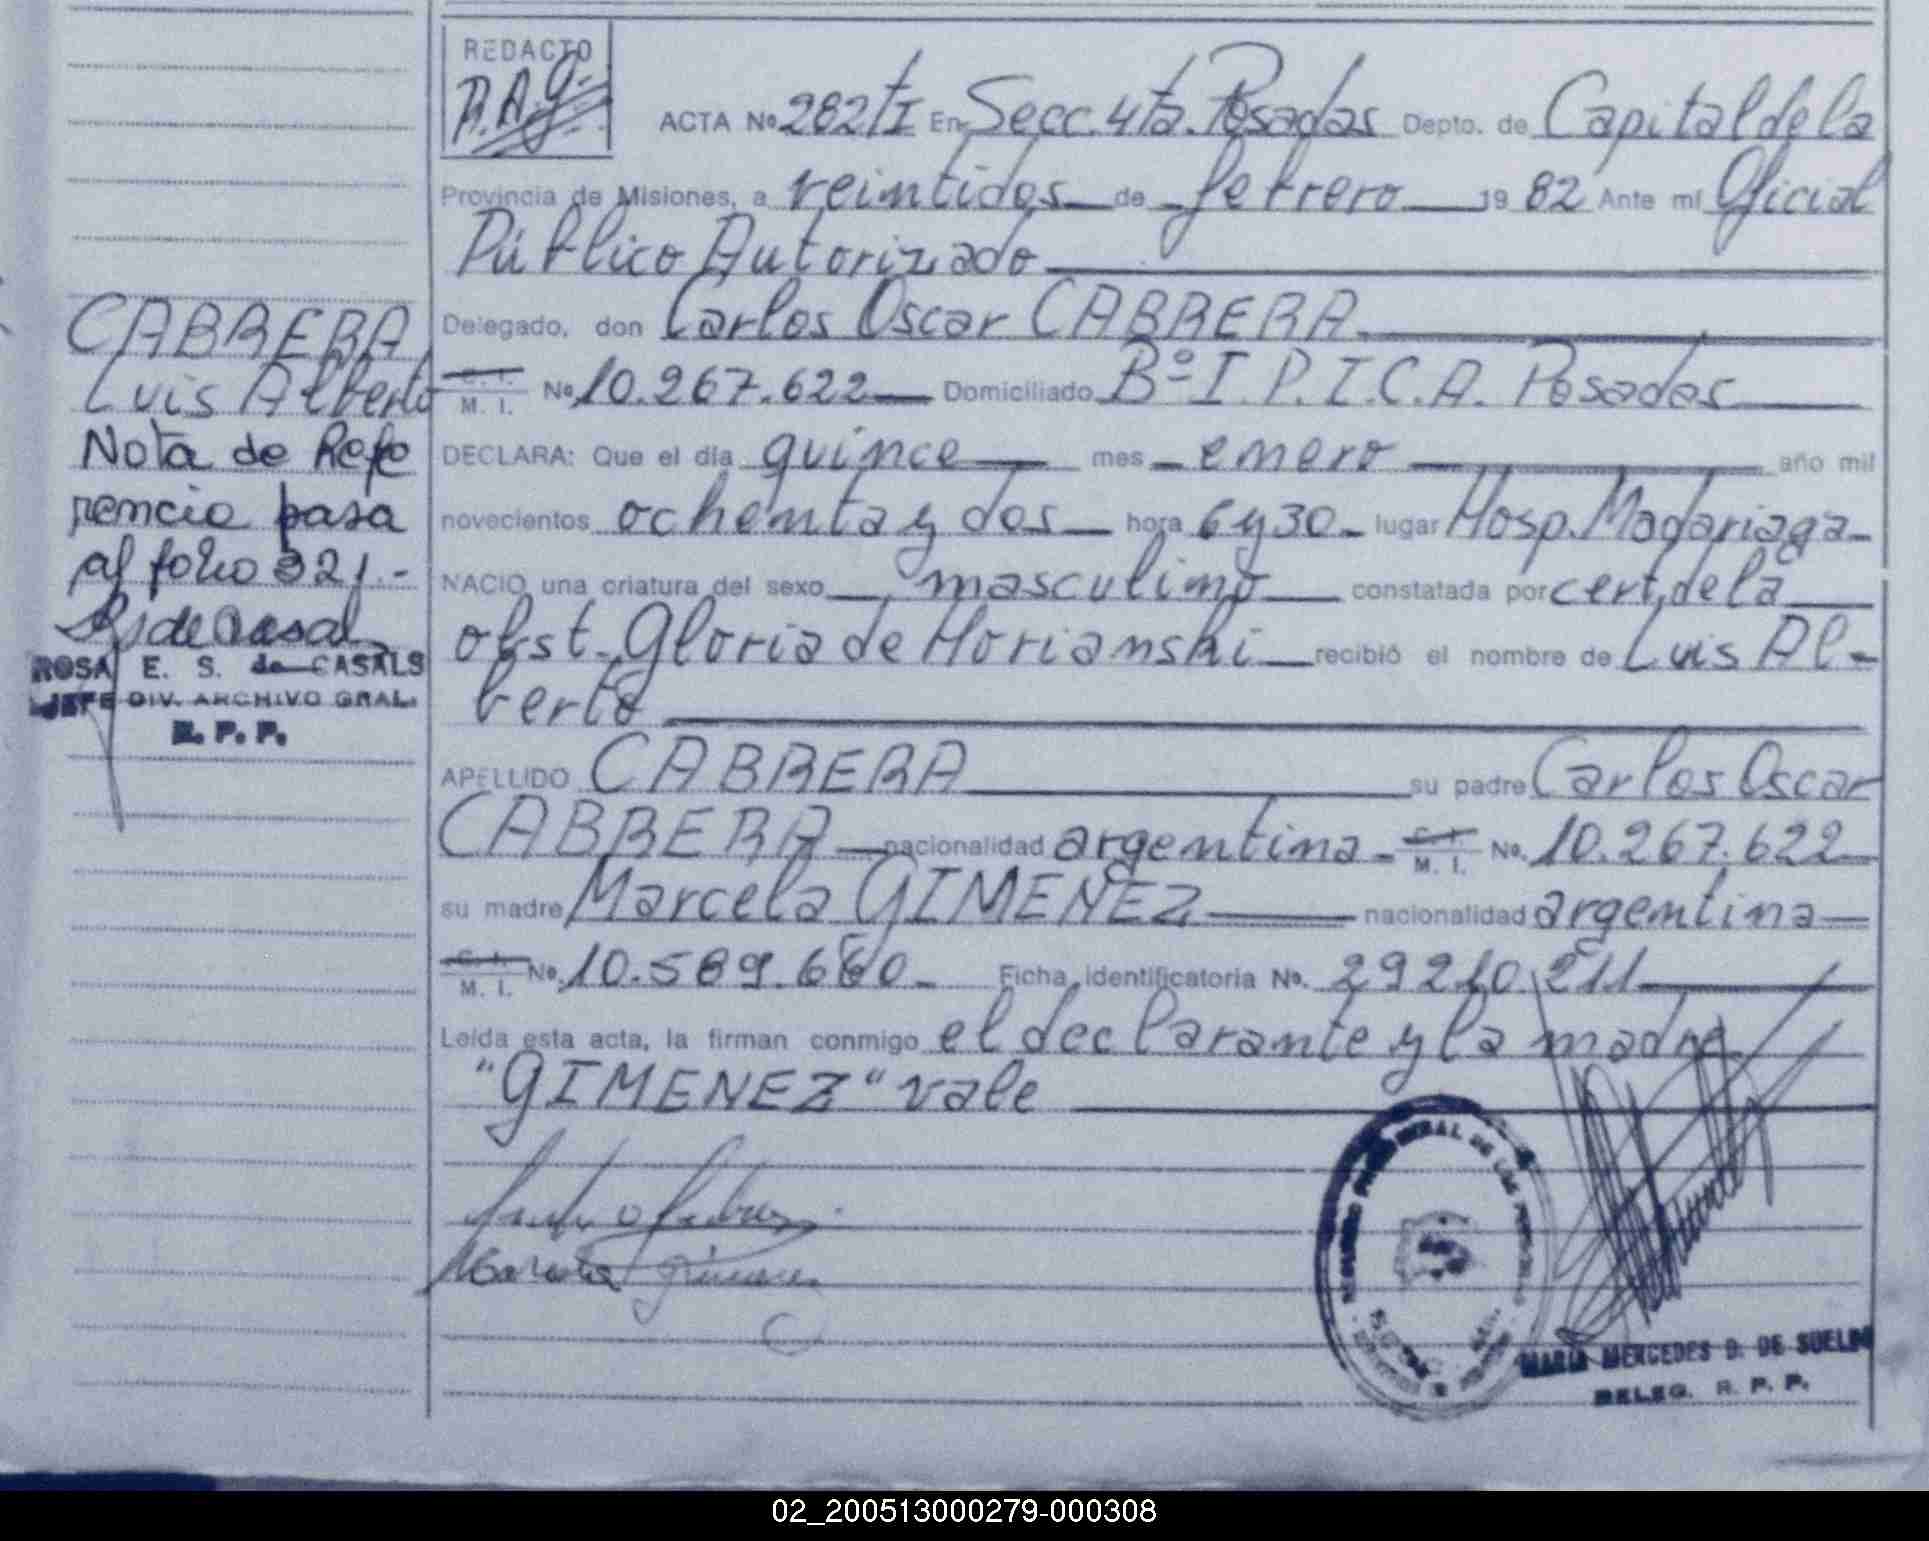 CABRERA
Luis Alberto
Nota de Refe
rencia pasa
al folio 321.-
ROSA E. S. de CASALS
JEFE DIV. ARCHIVO GRAL.
R. P. P.
REDACTO
R.A.G.
ACTA Nº 282 tI En Secc. 4ta. Posadas Depto. de Capital de la
Provincia de Misiones, a veintidos de febrero 19 82 Ante mí Oficial
Público Autorizado
Delegado, don Carlos Oscar CABRERA
C. I. M. I. Nº 10.267.622 Domiciliado Bº I.P.I.C.A. Posadas
DECLARA: Que el día quince mes enero año mil
novecientos ochenta y dos hora 6 y 30 lugar Hosp. Madariaga
NACIO una criatura del sexo masculino constatada por cert. de la
obst. Gloria de Horianski recibió el nombre de Luis Al-
berto
APELLIDO CABRERA su padre Carlos Oscar
CABRERA nacionalidad argentina C. I. M. I. Nº. 10.267.622
su madre Marcela GIMENEZ nacionalidad argentina
C. I. M. I. Nº. 10.589.660 Ficha identificatoria Nº. 29210211
Leída esta acta, la firman conmigo el declarante y la madre
"GIMENEZ" vale
MARIA MERCEDES D. DE SUELDO
DELEG. R. P. P.
02_200513000279-000308